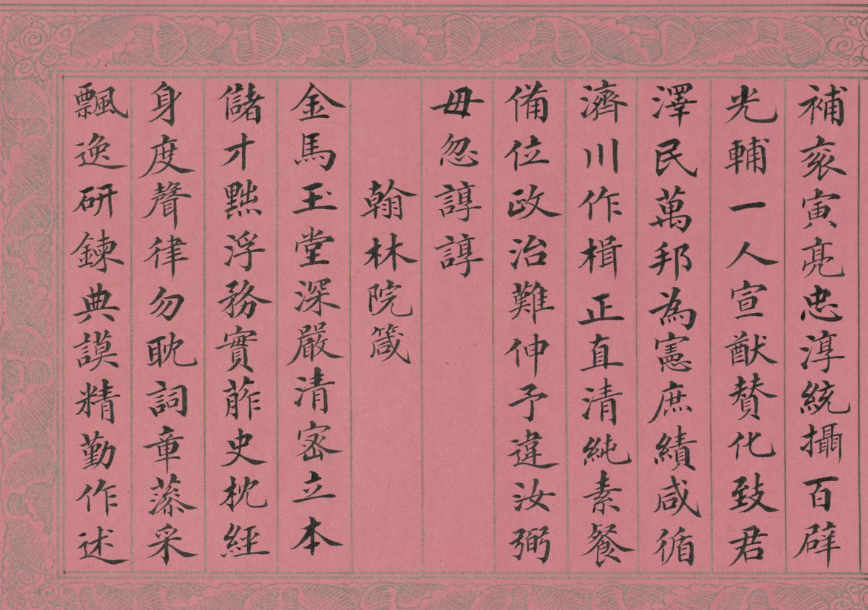 補衮寅亮忠淳統攝百辟
光輔一人宣猷賛化致君
澤民萬邦為憲庶績咸循
濟川作楫正直清純素餐
備位政治難伸予違汝弼
毋忽諄諄
翰林院箴
金馬玉堂深嚴清宻立本
儲才黜浮務實葄史枕經
身度聲律勿耽詞章藻采
飄逸研鍊典謨精勤作述